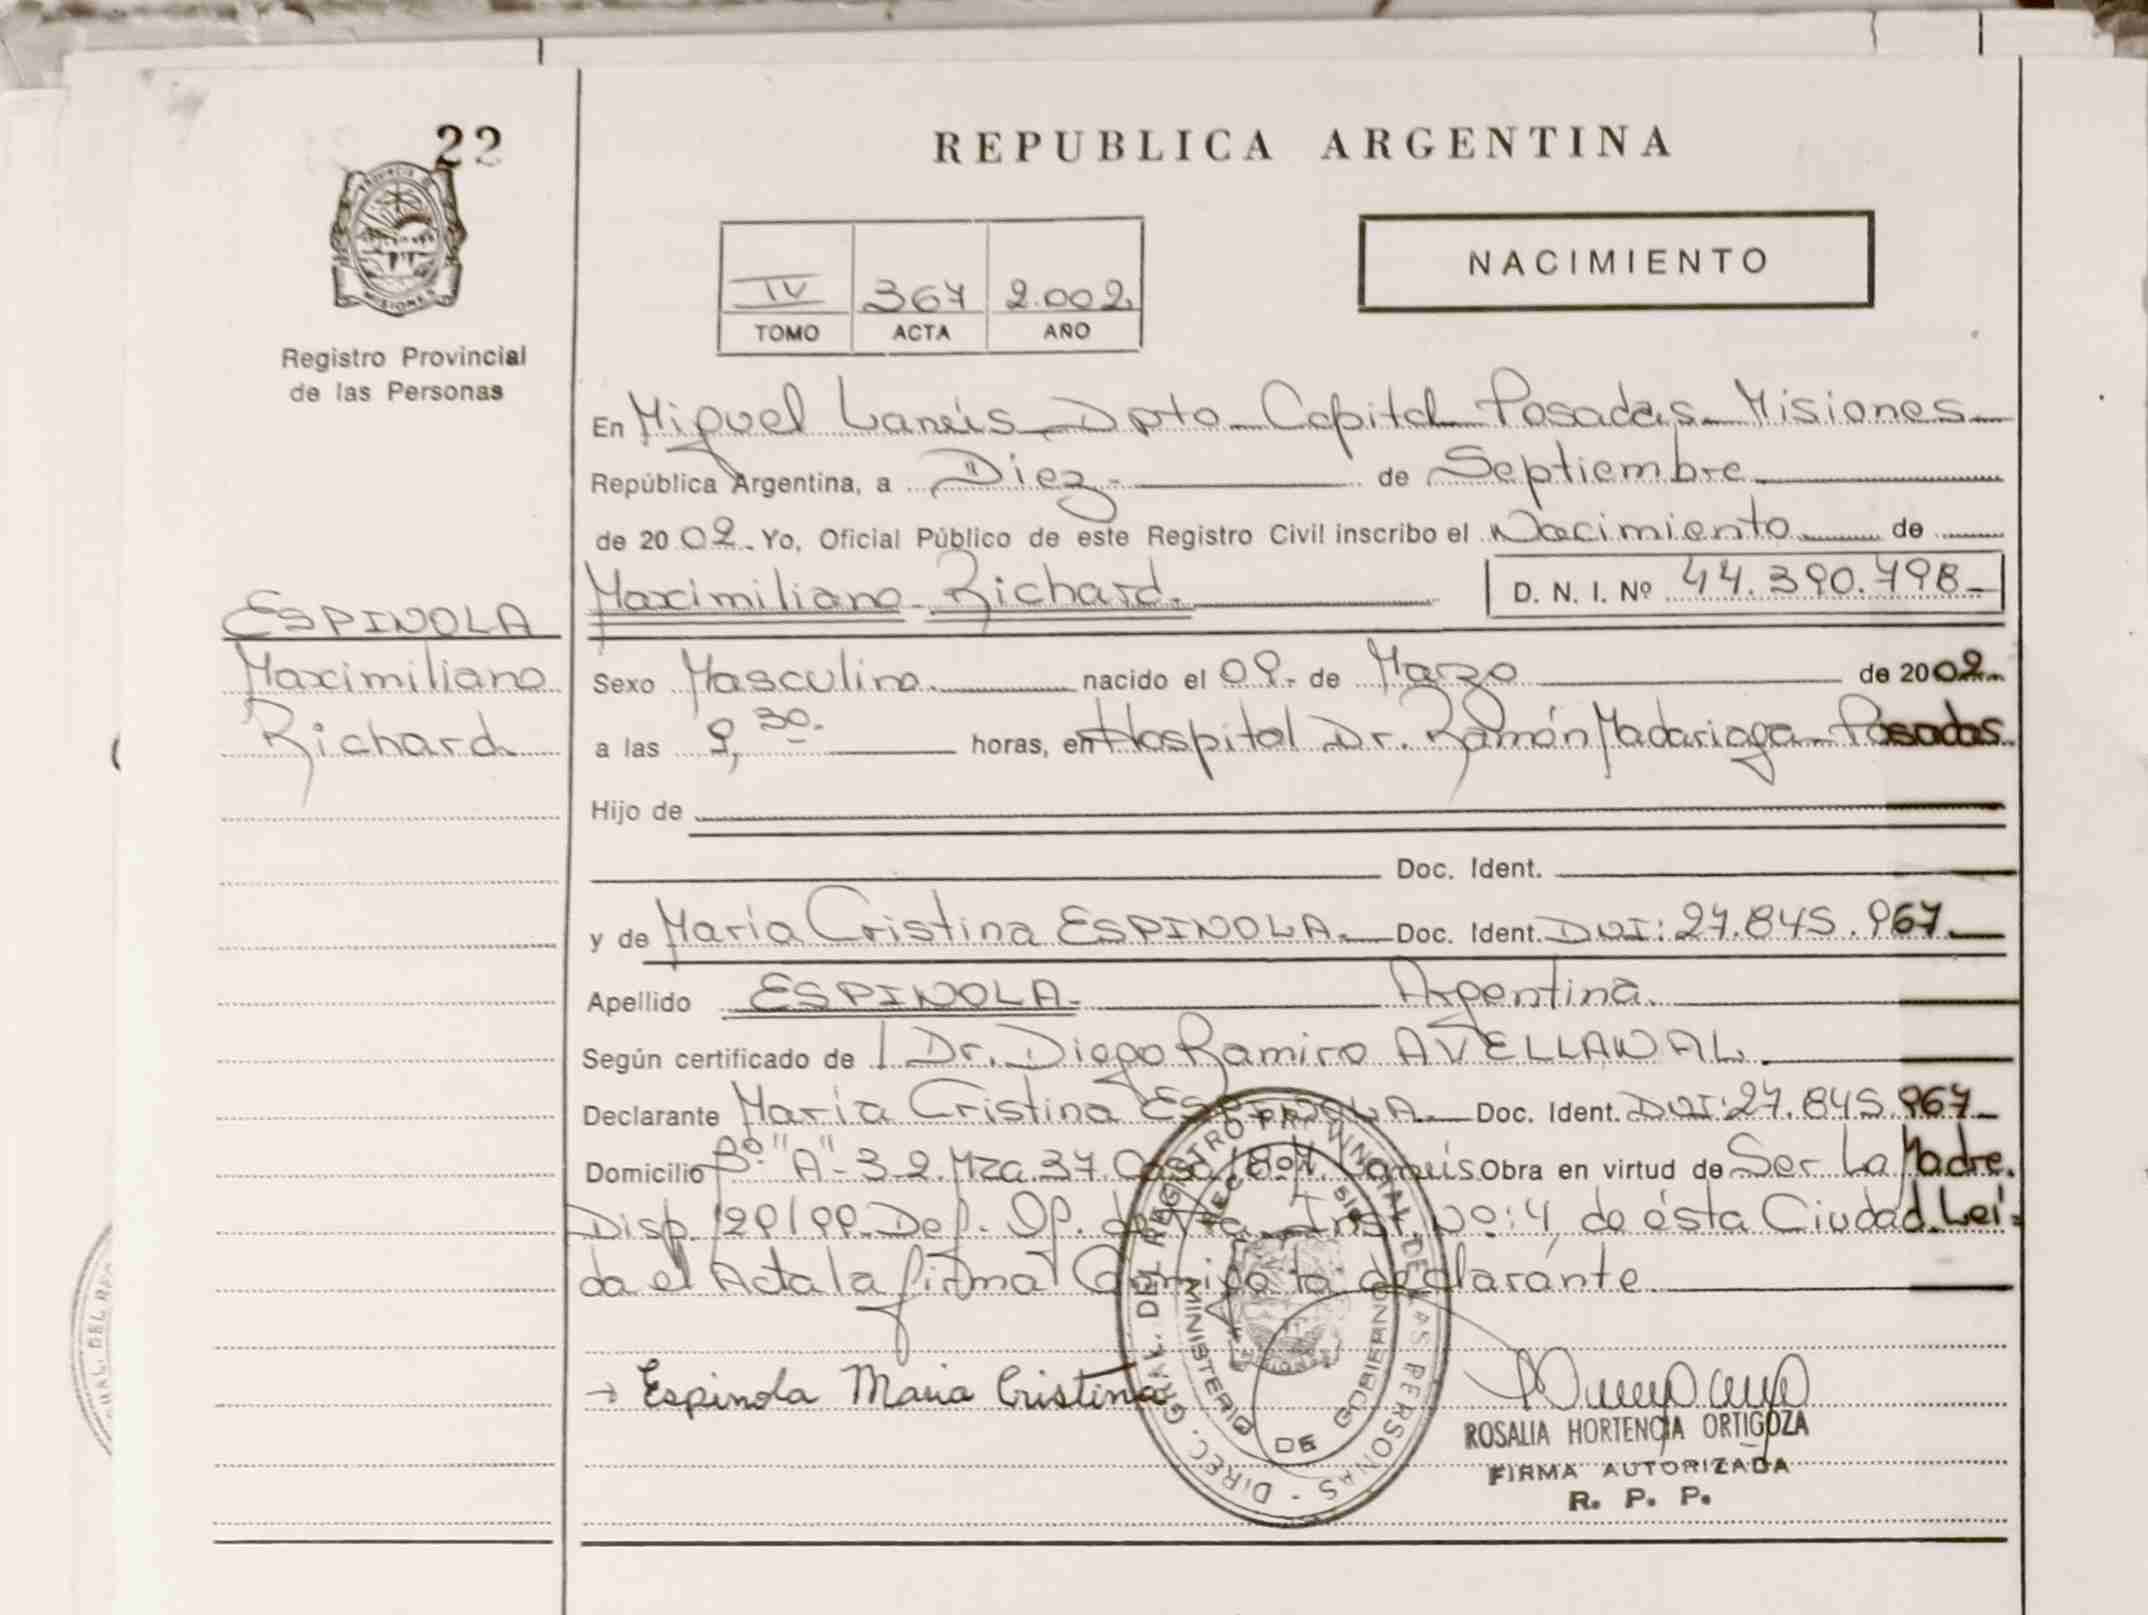 22
PROVINCIA DE
MISIONES
Registro Provincial
de las Personas
ESPINOLA
Maximiliano
Richard
REPUBLICA ARGENTINA
IV 367 2.002.
TOMO ACTA AÑO
NACIMIENTO
En Miguel Lanús Dpto Capital Posadas Misiones
República Argentina, a Diez de Septiembre
de 2002. Yo, Oficial Público de este Registro Civil inscribo el Nacimiento de
Maximiliano Richard. D. N. I. Nº 44.390.798-
Sexo Masculino. nacido el 09. de Marzo de 2002.
a las 9,30. horas, en Hospital Dr. Ramón Madariaga Posadas.
Hijo de
Doc. Ident.
y de María Cristina ESPINOLA. Doc. Ident. DNI: 27.845.967.
Apellido ESPINOLA. Argentina.
Según certificado de Dr. Diego Ramiro AVELLANAL.
Declarante María Cristina ESPINOLA. Doc. Ident. DNI: 27.845.967
Domicilio Bº "A"-3-2. Mza. 37. Casa Lanús Obra en virtud de Ser La Madre.
Disp. Def. Of. de Inst. Nº: 4, de ésta Ciudad. Leí-
da el Acta la firma Conmigo la declarante
Espinola Maria Cristina
DIREC. GRAL. DEL REGISTRO PROVINCIAL DE LAS PERSONAS
MINISTERIO DE GOBIERNO
ROSALIA HORTENCIA ORTIGOZA
FIRMA AUTORIZADA
R. P. P.